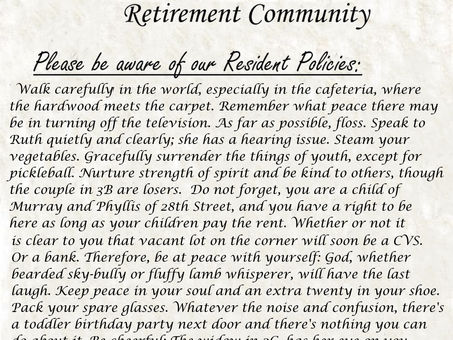 Retirement Community
Please be aware of our Resident Policies:
Walk carefully in the world, especially in the cafeteria, where
the hardwood meets the carpet. Remember what peace there may
be in turning off the television. As far as possible, floss. Speak to
Ruth quietly and clearly; she has a hearing issue. Steam your
vegetables. Gracefully surrender the things of youth, except for
pickleball. Nurture strength of spirit and be kind to others, though
the couple in 3B are losers. Do not forget, you are a child of
Murray and Phyllis of 28th Street, and you have a right to be
here as long as your children pay the rent. Whether or not it
is clear to you that vacant lot on the corner will soon be a CVS.
Or a bank. Therefore, be at peace with yourself: God, whether
bearded sky-bully or fluffy lamb whisperer, will have the last
laugh. Keep peace in your soul and an extra twenty in your shoe.
Pack your spare glasses. Whatever the noise and confusion, there's
a toddler birthday party next door and there's nothing you can
do about it. Be cheerful! The widow in 3G has her eye on you